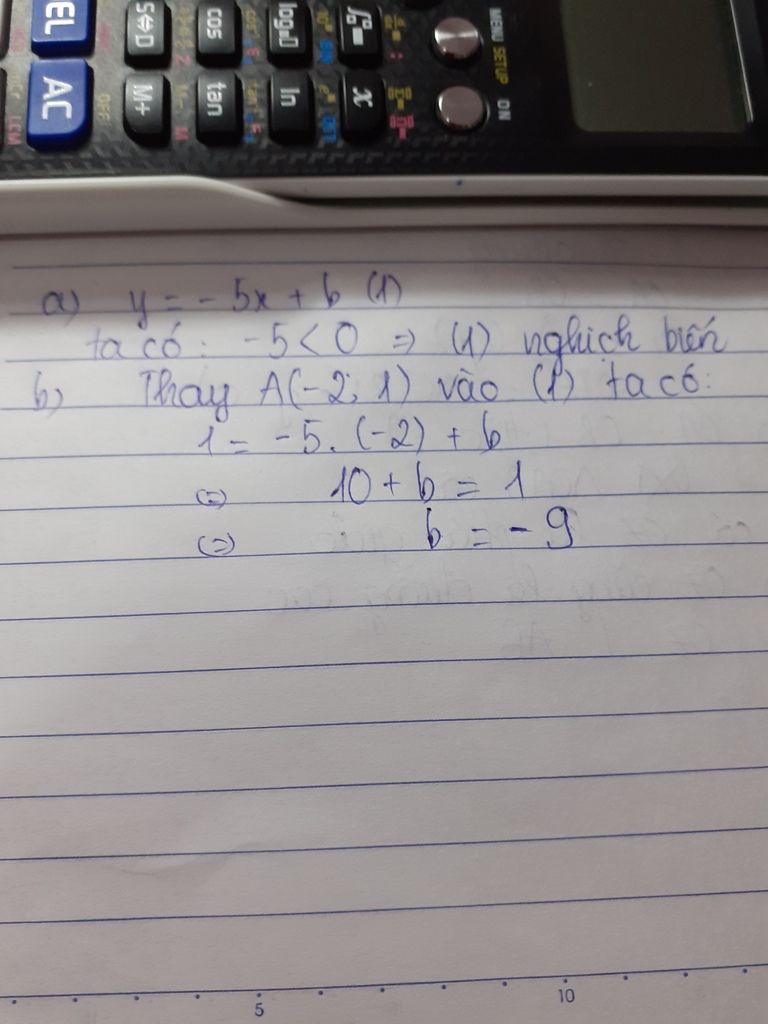 EL
AC
S⇔D
M+
cos
tan
ln
x
MENU SETUP
ON
OFF
a) y = - 5x + b (1)
ta có : -5 < 0 ⇒ (1) nghịch biến
b) Thay A(-2; 1) vào (1) ta có:
1 = -5. (-2) + b
(=) 10 + b = 1
(=) b = - 9
5
10